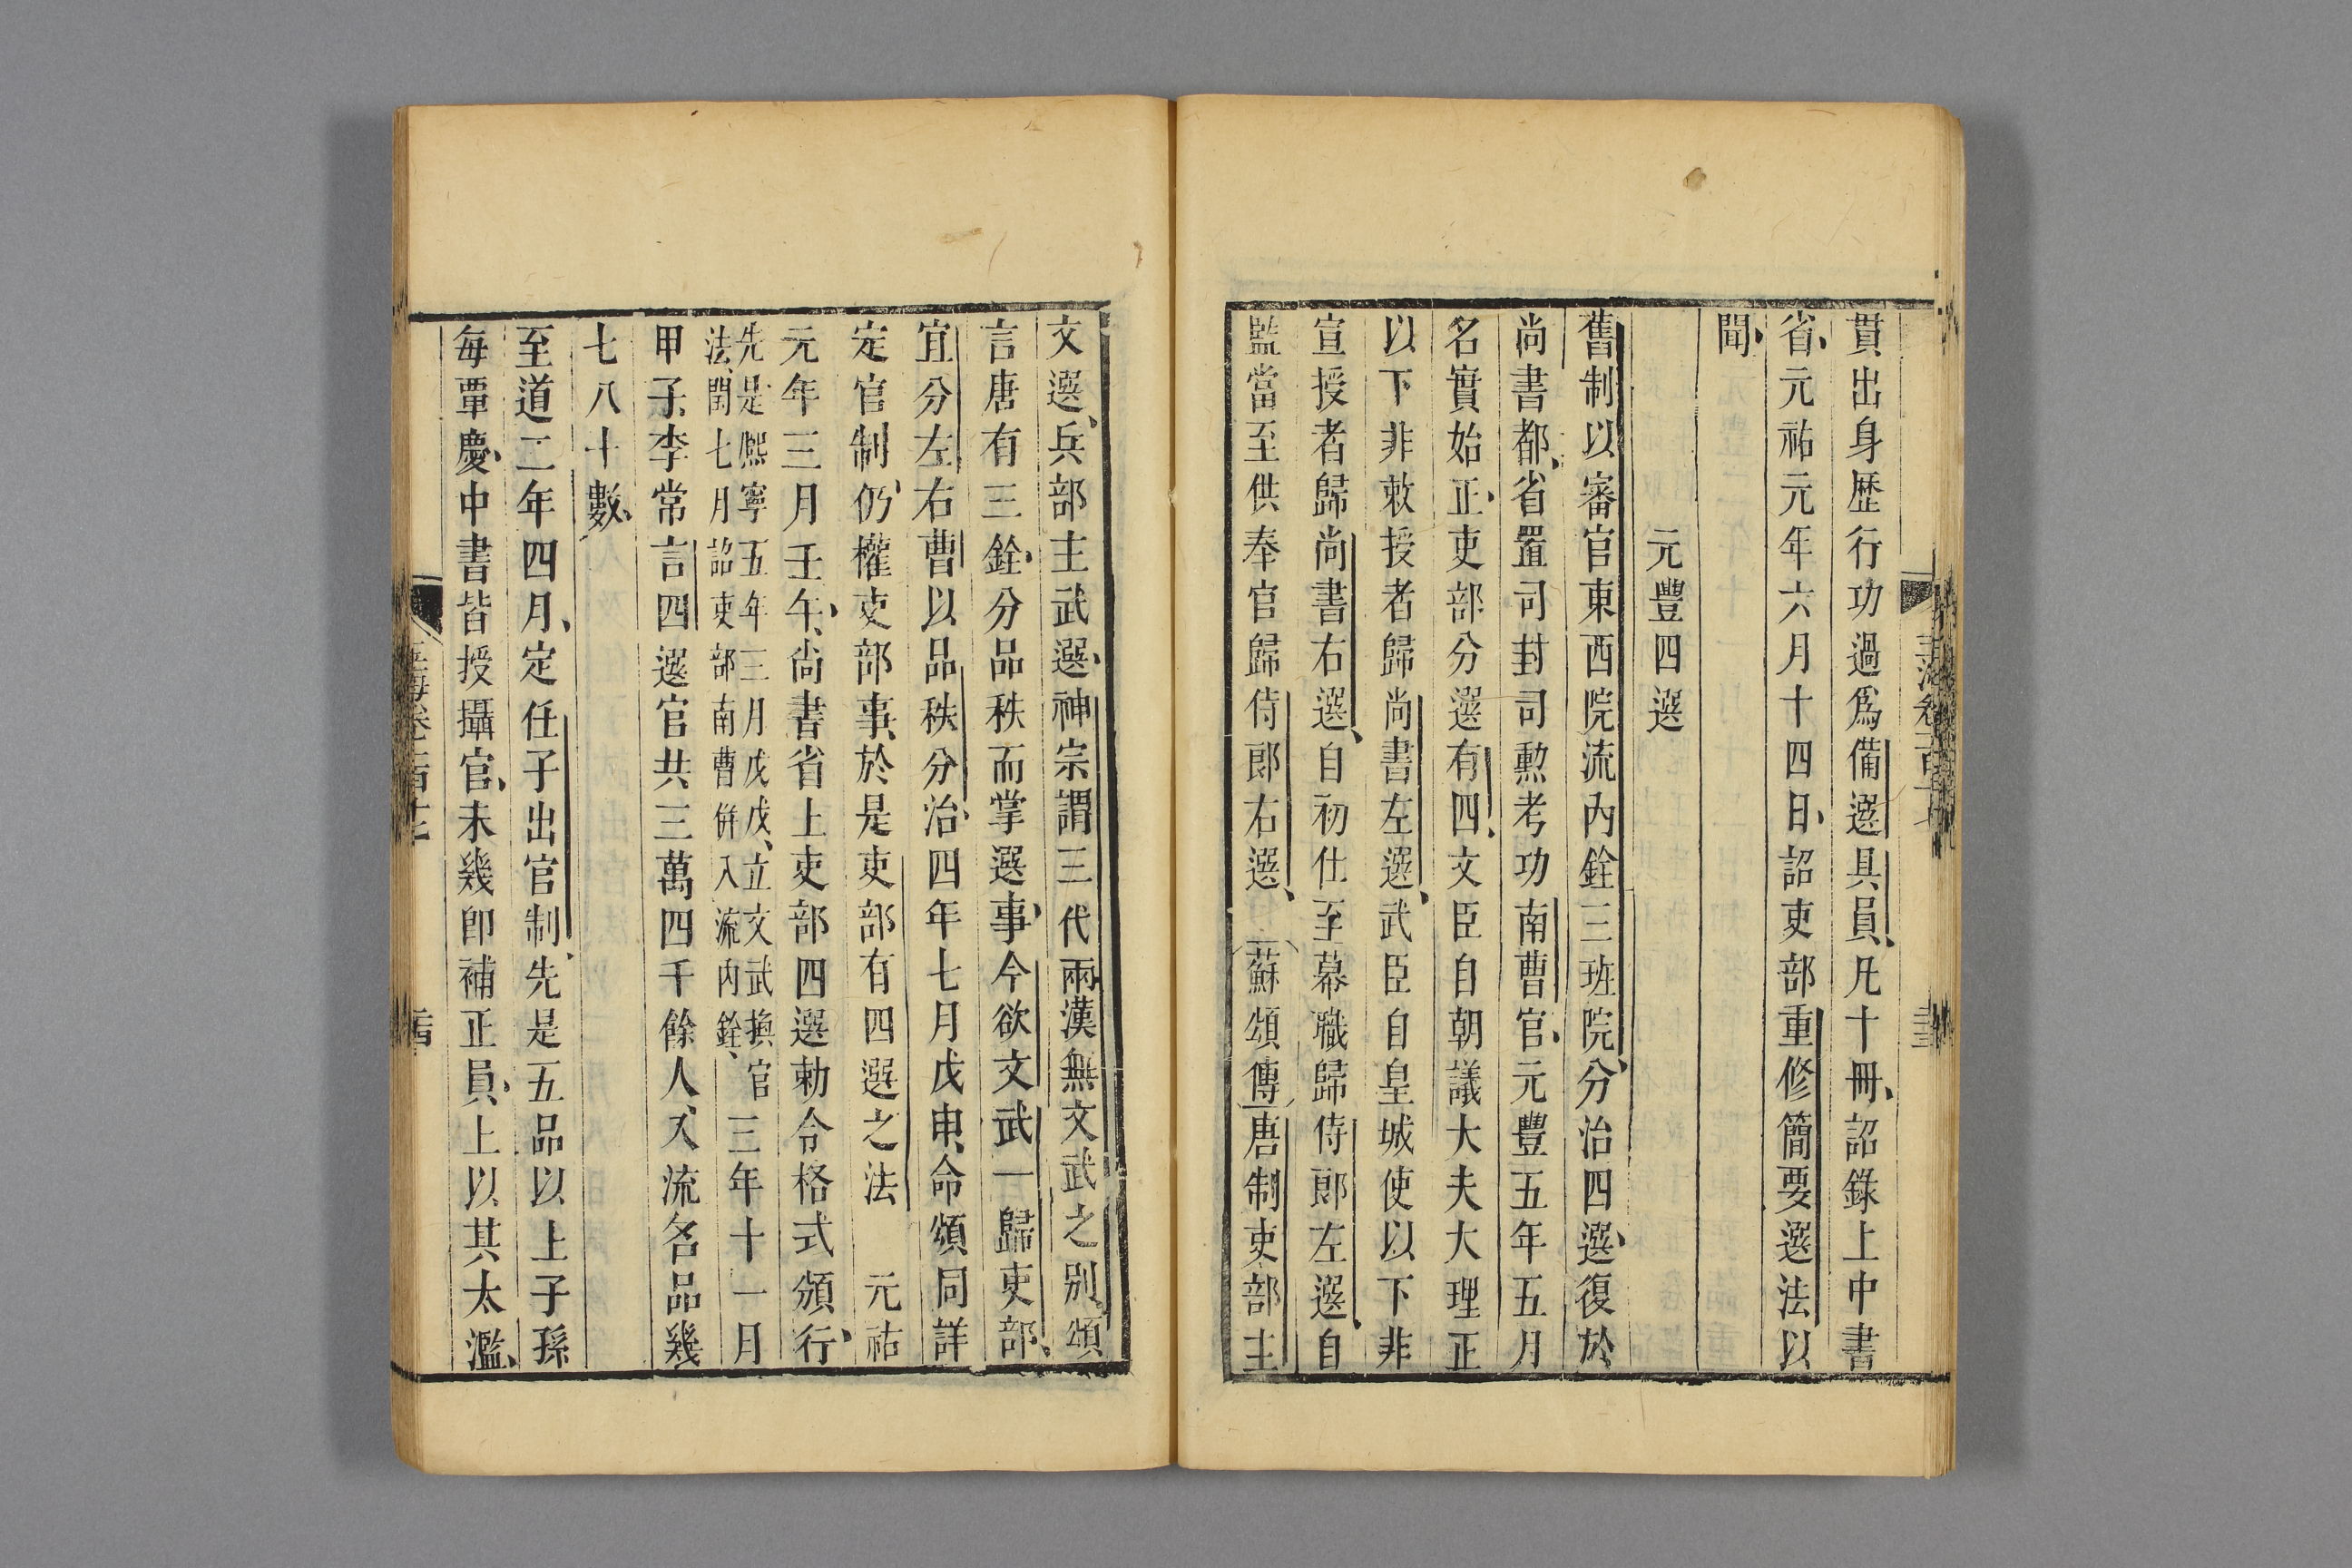 貫出身歷行功過爲備選具員凡十冊詔錄上中書
省元祐元年六月十四日詔吏部重修簡要選法以
聞
元豐四選
舊制以審官東西院流內銓三班院分治四選復於
尚書都省置司封司勲考功南曹官元豐五年五月
名實始正吏部分選有四文臣自朝議大夫大理正
以下非敕授者歸尚書左選武臣自皇城使以下非
宣授者歸尚書右選自初仕至幕職歸侍郎左選自
監當至供奉官歸侍郎右選 蘇頌傳唐制吏部主
文選兵部主武選神宗謂三代兩漢無文武之别頌
言唐有三銓分品秩而掌選事今欲文武一歸吏部
宜分左右曹以品秩分治四年七月戊申命頌同詳
定官制仍權吏部事於是吏部有四選之法 元祐
元年三月壬午尚書省上吏部四選勑令格式頒行
先是熈寧五年三月戊戌立文武換官
法閏七月詔吏部南曹併入流內銓
三年十一月
甲子李常言四選官共三萬四千餘人又流各品幾
七八十數
至道二年四月定任子出官制先是五品以上子孫
每覃慶中書皆授攝官未幾卽補正員上以其太濫
玉海卷一百十七